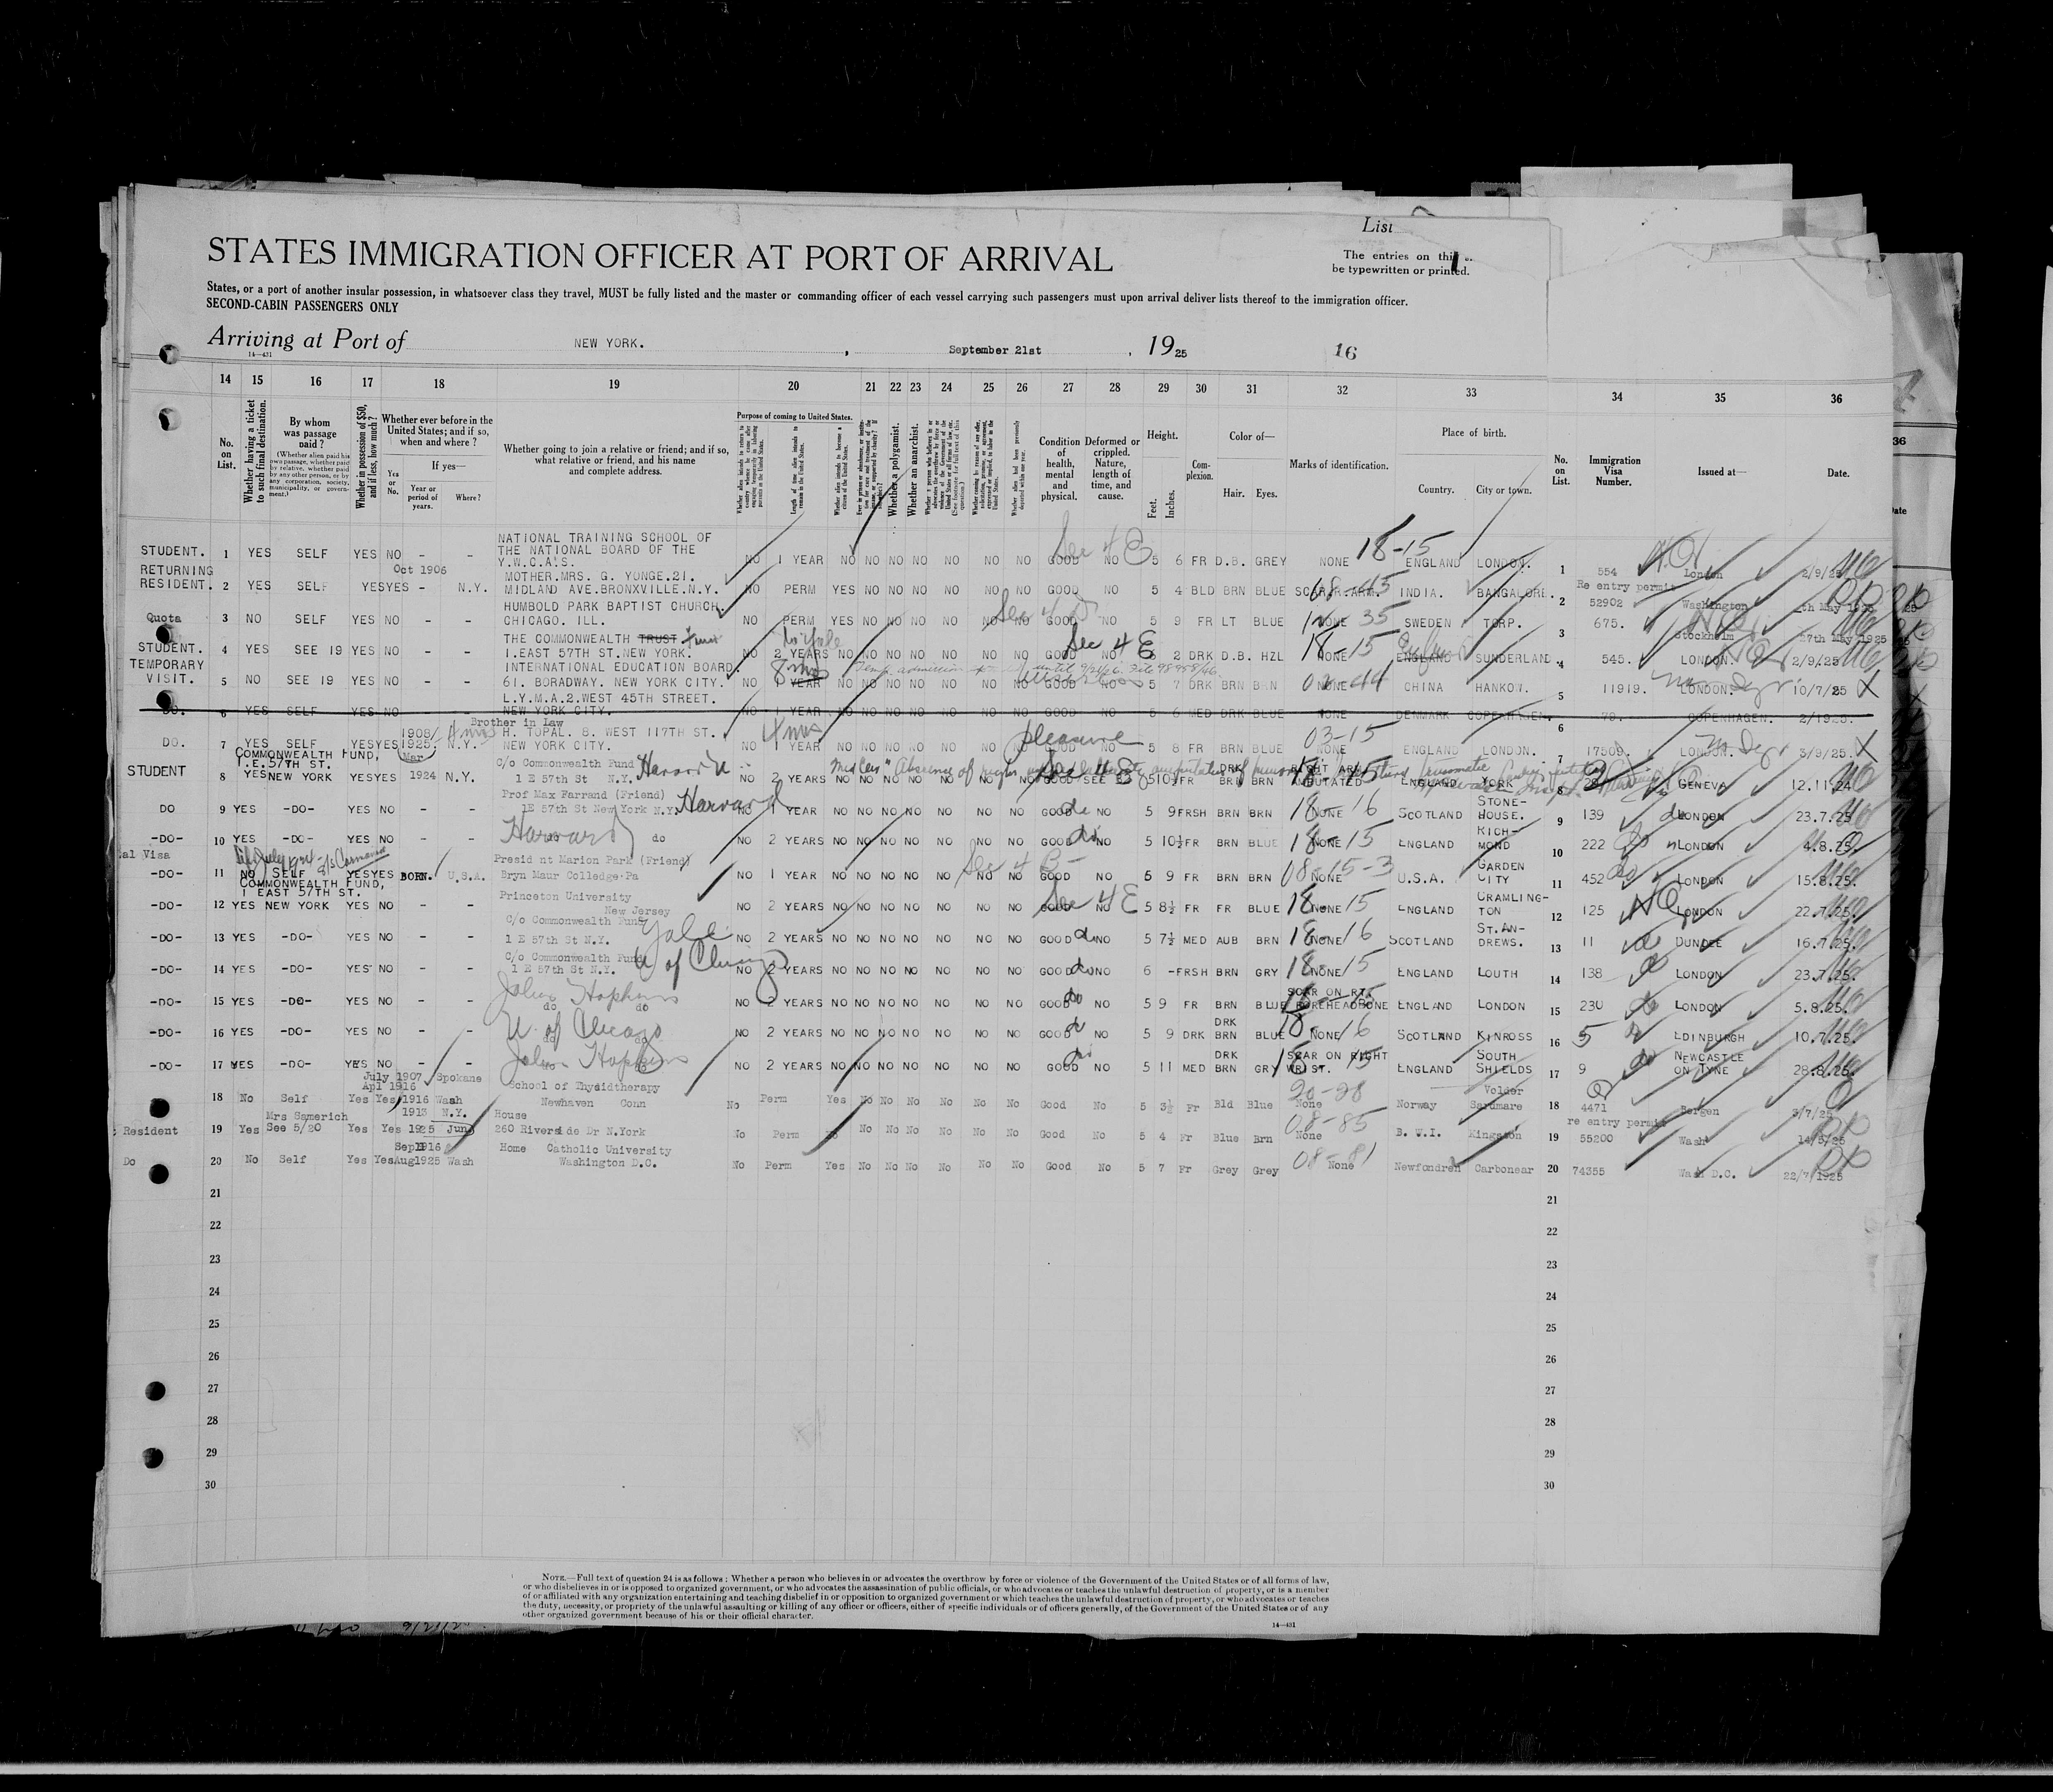 List
STATES IMMIGRATION OFFICER AT PORT OF ARRIVAL
The entries on this
be typewritten or printed.
States, or a port of another insular possession, in whatsoever class they travel, MUST be fully listed and the master or commanding officer of each vessel carrying such passengers must upon arrival deliver lists thereof to the immigration officer.
SECOND-CABIN PASSENGERS ONLY
Arriving at Port of NEW YORK. , September 21st , 1925 16
14—431
14 15 16 17 18 19 20 21 22 23 24 25 26 27 28 29 30 31 32 33 34 35 36
No. on List.
Whether having a ticket to such final destination.
By whom was passage paid?
(Whether alien paid his own passage, whether paid by relative, whether paid by any other person, or by any corporation, society, municipality, or government.)
Whether in possession of $50, and if less, how much?
Whether ever before in the United States; and if so, when and where?
If yes—
Yes or No.
Year or period of years.
Where?
Whether going to join a relative or friend; and if so, what relative or friend, and his name and complete address.
Purpose of coming to United States.
Length of time alien intends to remain in the United States.
Whether alien intends to become a citizen of the United States.
Whether a polygamist.
Whether an anarchist.
Condition of health, mental and physical.
Deformed or crippled. Nature, length of time, and cause.
Height.
Feet. Inches.
Complexion.
Color of—
Hair. Eyes.
Marks of identification.
Place of birth.
Country. City or town.
No. on List.
Immigration Visa Number.
Issued at—
Date.
STUDENT. 1 YES SELF YES NO - - NATIONAL TRAINING SCHOOL OF THE NATIONAL BOARD OF THE Y.W.C.A'S. NO 1 YEAR NO NO NO NO NO NO NO GOOD NO 5 6 FR D.B. GREY NONE 18-15 ENGLAND LONDON. 1 554 London 2/9/25
See 4 E
RETURNING RESIDENT. 2 YES SELF YES YES Oct 1906 - N.Y. MOTHER.MRS. G. YUNGE.21. MIDLAND AVE.BRONXVILLE.N.Y. NO PERM YES NO NO NO NO NO NO GOOD NO 5 4 BLD BRN BLUE INDIA. BANGALORE. 2 Re entry permit 52902 Washington
Quota 3 NO SELF YES NO - - HUMBOLD PARK BAPTIST CHURCH. CHICAGO. ILL. NO PERM YES NO NO NO NO NO NO GOOD NO 5 9 FR LT BLUE NONE 35 SWEDEN TORP. 3 675. Stockholm
STUDENT. 4 YES SEE 19 YES NO - - THE COMMONWEALTH TRUST Fund 1.EAST 57TH ST.NEW YORK. to Yale NO 2 YEARS NO NO NO NO NO NO NO GOOD NO 5 2 DRK D.B. HZL NONE 18-15 ENGLAND SUNDERLAND. 4 545. LONDON. 2/9/25
See 4 E
TEMPORARY VISIT. 5 NO SEE 19 YES NO - - INTERNATIONAL EDUCATION BOARD. 61. BORADWAY. NEW YORK CITY. NO 8 mos 1 YEAR NO NO NO NO NO NO NO GOOD NO 5 7 DRK BRN BRN NONE CHINA HANKOW. 5 11919. LONDON. 10/7/25 X
DO. 6 YES SELF YES NO L.Y.M.A.2.WEST 45TH STREET. NEW YORK CITY. NO 1 YEAR NO NO NO NO NO NO NO GOOD NO 5 6 MED DRK BLUE NONE DENMARK COPENHAGEN. 6 79. COPENHAGEN.
DO. 7 YES SELF YES YES 1908/ 1925. (Mar) N.Y. Brother in Law H. TOPAL. 8. WEST 117TH ST. NEW YORK CITY. NO 1 YEAR NO NO NO NO NO NO NO GOOD NO 5 8 FR BRN BLUE 03-15 NONE ENGLAND LONDON. 7 17509. LONDON. 3/9/25. X
pleasure
STUDENT 8 YES COMMONWEALTH FUND, 1.E.57TH ST. NEW YORK YES YES 1924 N.Y. C/o Commonwealth Fund 1 E 57th St N.Y. Harvard U NO 2 YEARS NO NO NO NO NO NO NO GOOD SEE 5 10½ FR DRK BRN BRN RIGHT ARM AMPUTATED ENGLAND YORK 8 GENEVA 12.11.24
DO 9 YES -DO- YES NO - - Prof Max Farrand (Friend) 1E 57th St New York N.Y. Harvard NO 1 YEAR NO NO NO NO NO NO NO GOOD NO 5 9 FRSH BRN BRN NONE 18-16 SCOTLAND STONE-HOUSE. 9 139 LONDON 23.7.25.
-DO- 10 YES -DO- YES NO - - Harvard do NO 2 YEARS NO NO NO NO NO NO NO GOOD NO 5 10½ FR BRN BLUE NONE 18-15 ENGLAND RICH-MOND 10 222 LONDON 4.8.25.
al Visa -DO- 11 NO SELF YES YES BORN. U.S.A. Presid nt Marion Park (Friend) Bryn Maur Colledge.Pa NO 1 YEAR NO NO NO NO NO NO NO GOOD NO 5 9 FR BRN BRN NONE 08-15-3 U.S.A. GARDEN CITY 11 452 LONDON 15.8.25.
-DO- 12 YES COMMONWEALTH FUND, 1 EAST 57TH ST. NEW YORK YES NO - - Princeton University New Jersey NO 2 YEARS NO NO NO NO NO NO NO GOOD NO 5 8½ FR FR BLUE NONE 18-15 ENGLAND CRAMLING-TON 12 125 LONDON 22.7.25.
See 4 E
-DO- 13 YES -DO- YES NO - - C/o Commonwealth Fund 1 E 57th St N.Y. Yale NO 2 YEARS NO NO NO NO NO NO NO GOOD NO 5 7½ MED AUB BRN NONE 18-16 SCOTLAND ST.AN-DREWS. 13 11 DUNDEE 16.7.25.
-DO- 14 YES -DO- YES NO - - C/o Commonwealth Fund 1 E 57th St N.Y. U of Chicago NO 2 YEARS NO NO NO NO NO NO NO GOOD NO 6 - FRSH BRN GRY NONE 18-15 ENGLAND LOUTH 14 138 LONDON 23.7.25.
-DO- 15 YES -DO- YES NO - - John Hopkins do do NO 2 YEARS NO NO NO NO NO NO NO GOOD NO 5 9 FR BRN BLUE SCAR ON RT. FOREHEADBONE ENGLAND LONDON 15 230 LONDON 5.8.25.
-DO- 16 YES -DO- YES NO - - U. of Chicago do do NO 2 YEARS NO NO NO NO NO NO NO GOOD NO 5 9 DRK DRK BRN BLUE NONE 18-16 SCOTLAND KINROSS 16 5 EDINBURGH 10.7.25.
-DO- 17 YES -DO- YES NO - - John Hopkins NO 2 YEARS NO NO NO NO NO NO NO GOOD NO 5 11 MED DRK BRN GRY SCAR ON RIGHT WRIST. ENGLAND SOUTH SHIELDS 17 9 NEWCASTLE ON TYNE 28.8.25.
18 No Self Yes Yes July 1907 Apl 1916 1916 Spokane Wash School of Thydidtherapy Newhaven Conn No Perm Yes No No No No No No Good No 5 3½ Fr Bld Blue None 20-28 Norway Volder Sardmare 18 4471 Bergen 3/7/25
Resident 19 Yes Mrs Samerich See 5/20 Yes Yes 1913 1925 N.Y. June House 260 Riverside Dr N.York No Perm No No No No No No No Good No 5 4 Fr Blue Brn None 08-85 B. W.I. Kingston 19 re entry permit 55200 Wash 14/5/25
Do 20 No Self Yes Yes Sep 1916 Aug1925 Wash Home Catholic University Washington D.C. No Perm Yes No No No No No No Good No 5 7 Fr Grey Grey None 08-81 Newfondren Carbonear 20 74355 Wash D.C. 22/7/1925
21 21
22 22
23 23
24 24
25 25
26 26
27 27
28 28
29 29
30 30
NOTE.—Full text of question 24 is as follows: Whether a person who believes in or advocates the overthrow by force or violence of the Government of the United States or of all forms of law,
or who disbelieves in or is opposed to organized government, or who advocates the assassination of public officials, or who advocates or teaches the unlawful destruction of property, or is a member
of or affiliated with any organization entertaining and teaching disbelief in or opposition to organized government or which teaches the unlawful destruction of property, or who advocates or teaches
the duty, necessity, or propriety of the unlawful assaulting or killing of any officer or officers, either of specific individuals or of officers generally, of the Government of the United States or of any
other organized government because of his or their official character.
14—431